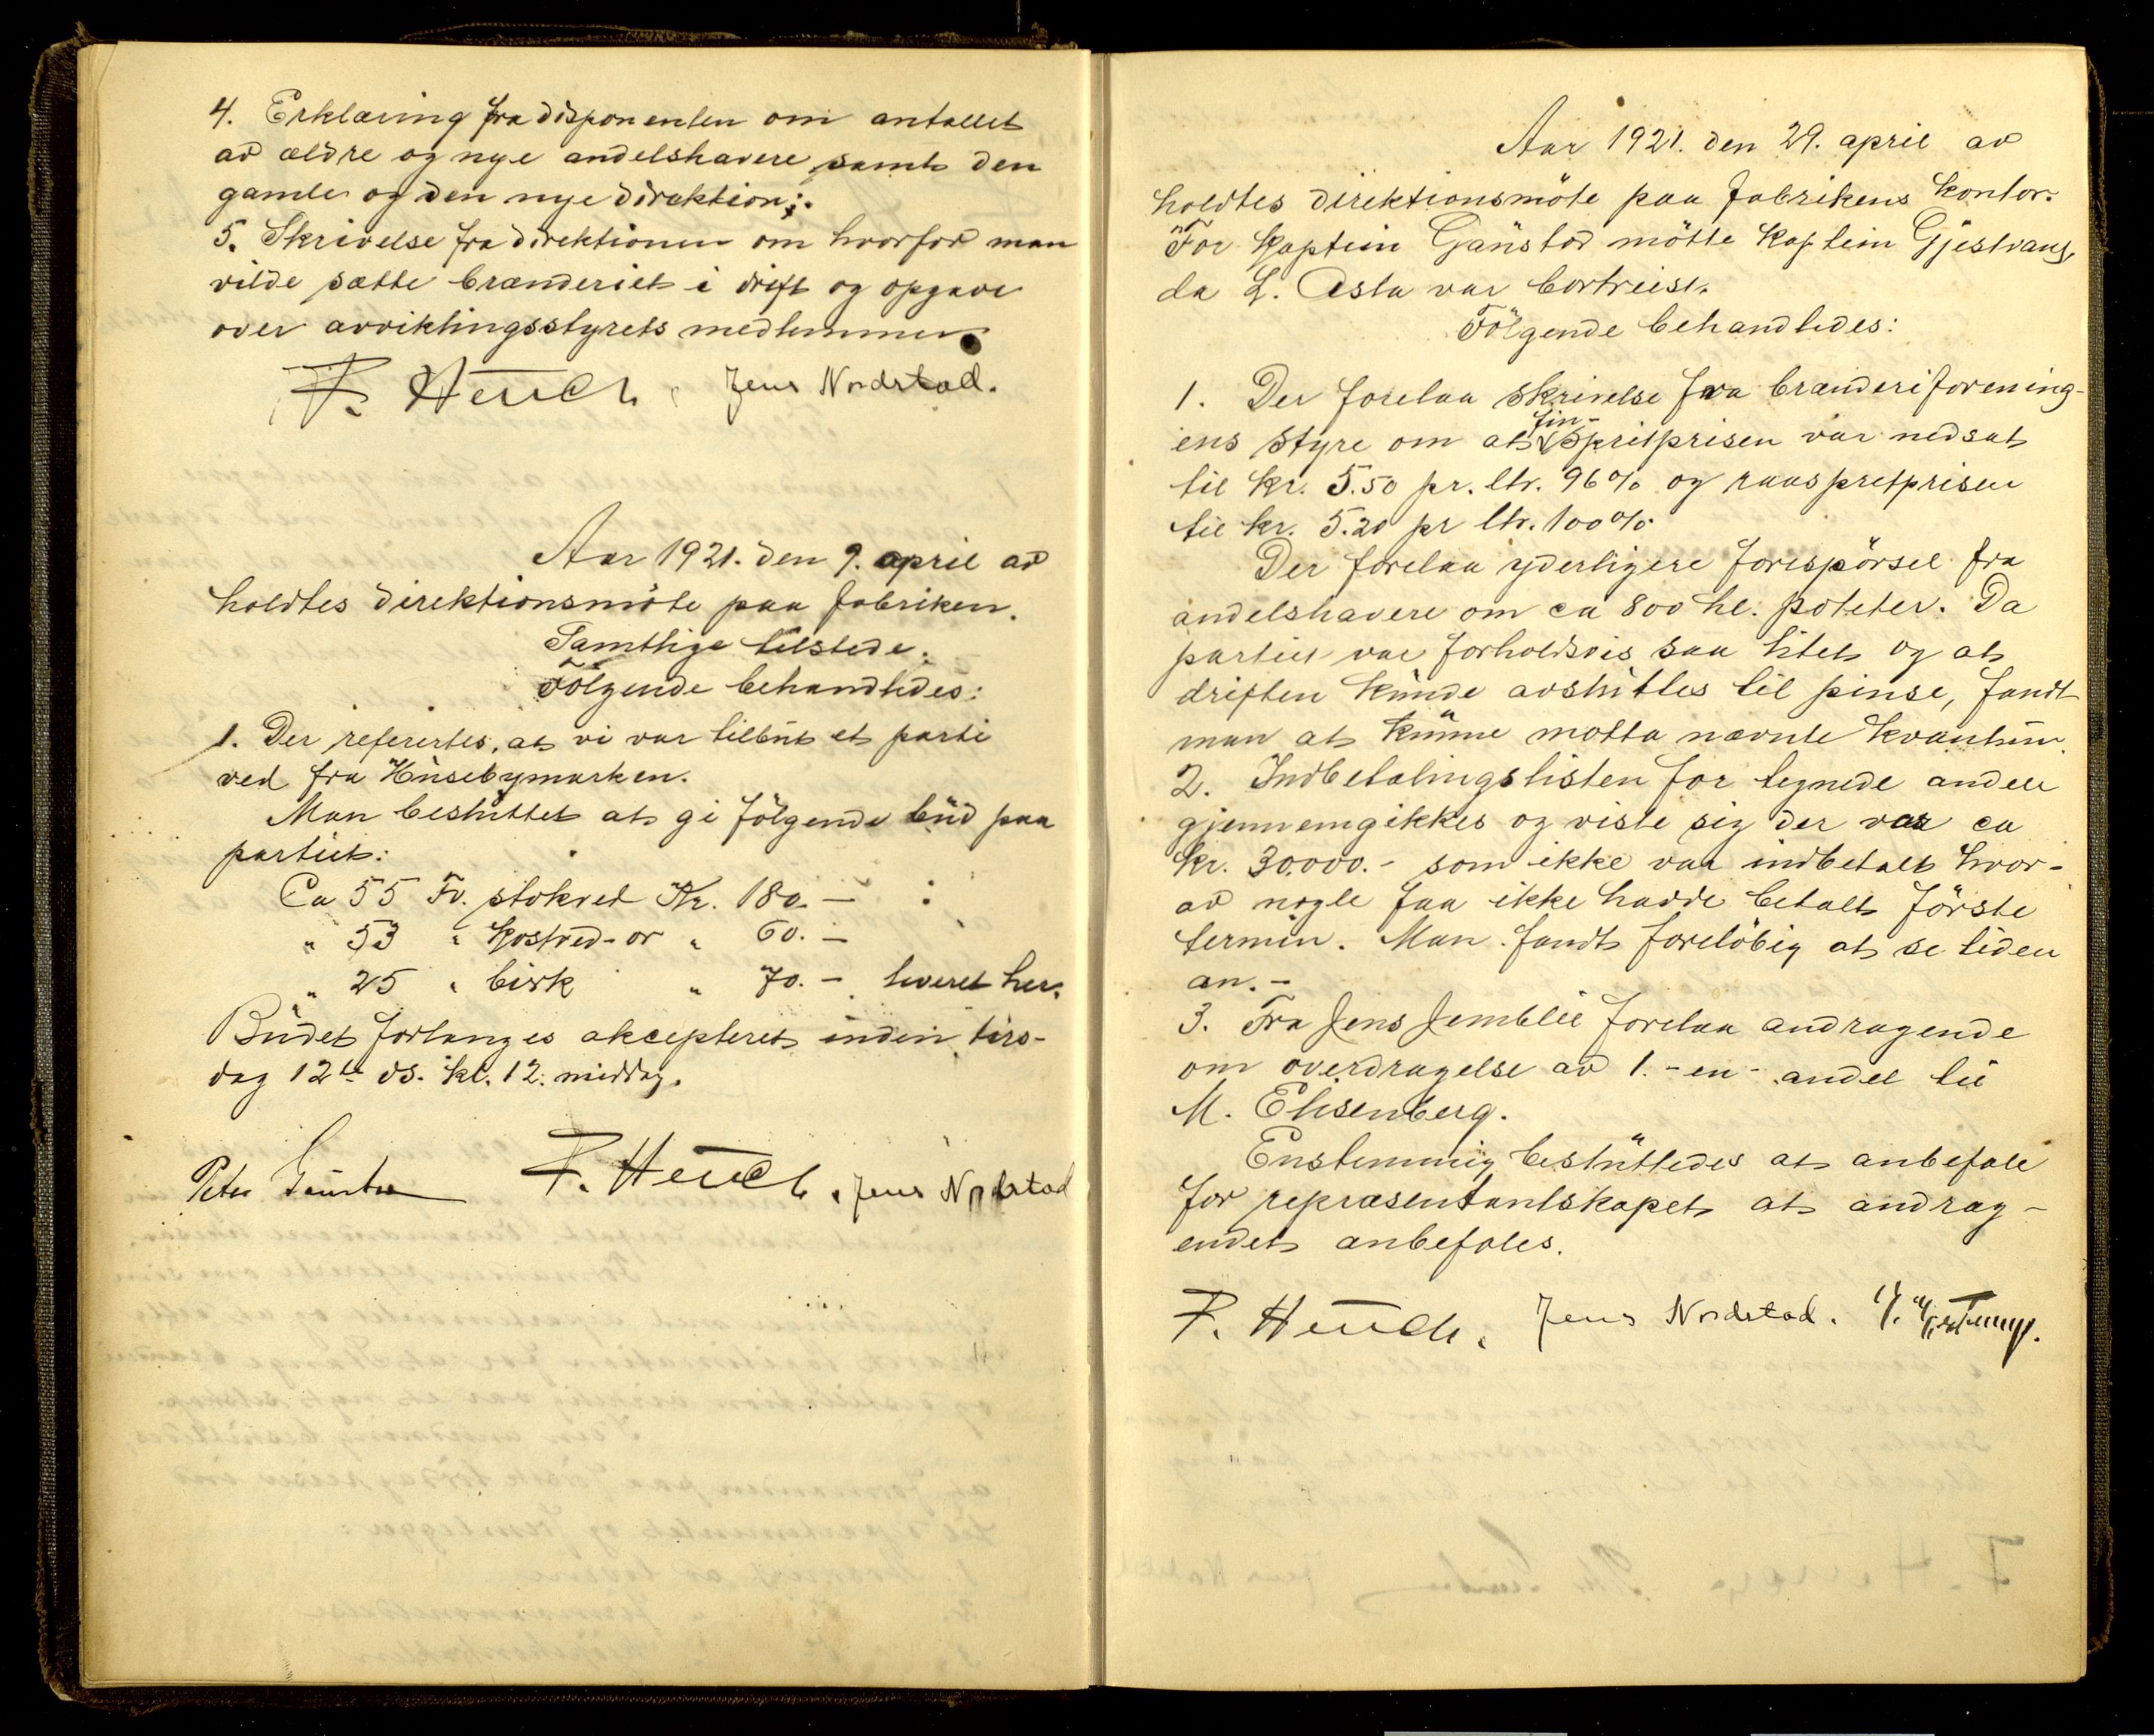 4. Erklæring fra disponenten om antallet
av ældre og nye andelshavere samt den
gamle og den nye direktion;.
5. Skrivelse fra direktionen om hvorfor man
vilde sætte brænderiet i drift og opgave
over avviklingsstyrets medlemmer.
F. Heuch. Jens Nordstad.
Aar 1921. den 9. april av
holdtes direktionsmöte paa fabriken.
Samtlige tilstede.
Fölgende behandledes:
1. Der refertes, at vi var tilbut et parti
ved fra Husebymarken.
Man besluttet at gi fölgende bud paa
partiet:
Ca 55 Fv. stokved Kr. 180.-
" 53 " Kostved-or " 60.-
" 25 " birk " 70.- leveret her.
Budet forlanges akcepteret inden tirs-
dag 12te ds. kl. 12 middag.
Peter F. Heuch. Jens Nordstad
Aar 1921. den 29. april av
holdtes direktionsmöte paa fabrikens kontor.
For Kaptein Gaustad mötte Kaptein Gjestvang,
da L. Asta var bortreist.
Fölgende behandledes:
1. Der forelaa skrivelse fra brænderiforening-
ens styre om at fin-spritprisen var nedsat
til kr. 5.50 pr. ltr. 96% og raaspritprisen
til kr. 5.20 pr ltr. 100%
Der forelaa yderligere forespörsel fra
andelshavere om ca 800 hl. poteter. Da
partiet var forholdsvis saa litet og at
driften kunde avsluttes til pinse, fandt
man at kunne motta nævnte kvantum.
2. Indbetalingslisten for tegnede andele
gjennemgikkes og viste sig der var ca
kr. 30.000.- som ikke var indbetalt hvor-
av nogle faa ikke hadde betalt förste
termin. Man fandt forelöbig at se tiden
an.-
3. Fra Jens Jemblie forelaa andragende
om overdragelse av 1.-en- andel til
M. Elisenberg.
Enstemmig besluttedes at anbefale
for repræsentantskapet at andrag-
endet anbefales.
F. Heuch. Jens Nordstad.